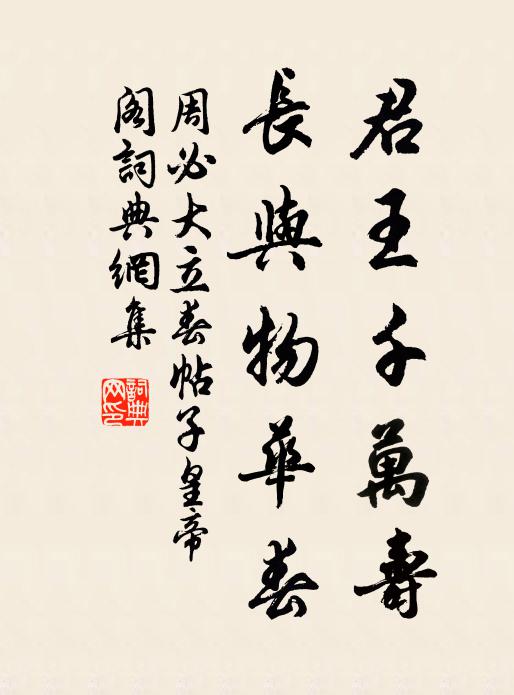 君王千萬壽
長與物華春
周必大立春帖子皇帝
閣詞典網集
詞典
网印